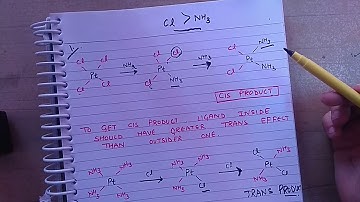 Cl > NH3
1/
Cl Cl
Pt
Cl Cl
NH3
Cl Cl
Pt
Cl NH3
NH3
Cl NH3
Pt
Cl NH3
CIS PRODUCT.
TO GET CIS PRODUCT LIGAND INSIDE
SHOULD HAVE GREATER TRANS EFFECT
THAN OUTSIDER ONE.
NH3 NH3
Pt
NH3 NH3
Cl
NH3 NH3
Pt
NH3 Cl
Cl
Cl NH3
Pt
NH3 Cl
TRANS PRODU